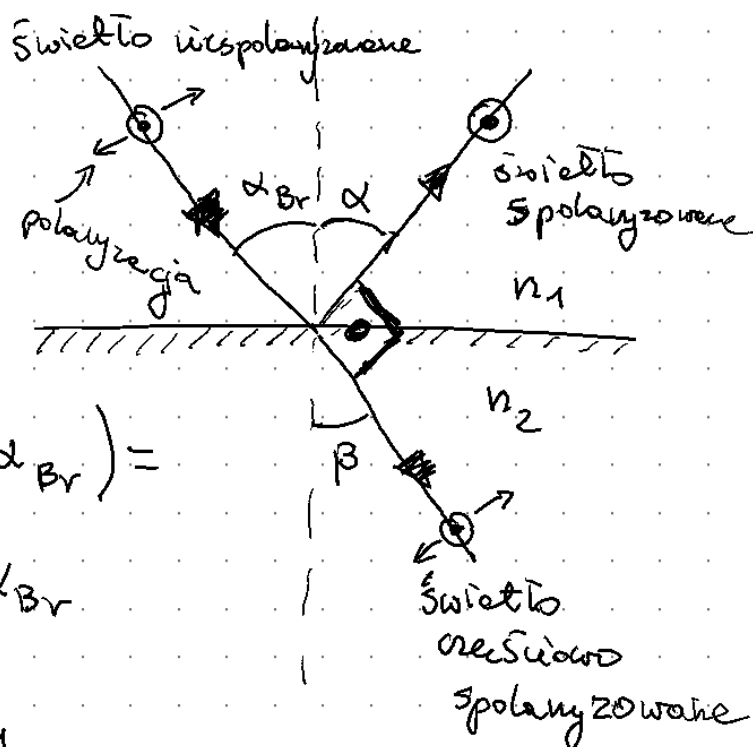 światło niespolaryzowane
α_Br α
polaryzacja
światło
spolaryzowane
n₁
n₂
α_Br) =
β
α_Br
światło
częściowo
spolaryzowane